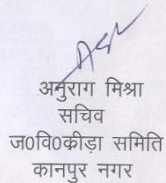 अनुराग मिश्रा
सचिव
ज०वि०कीड़ा समिति
कानपुर नगर